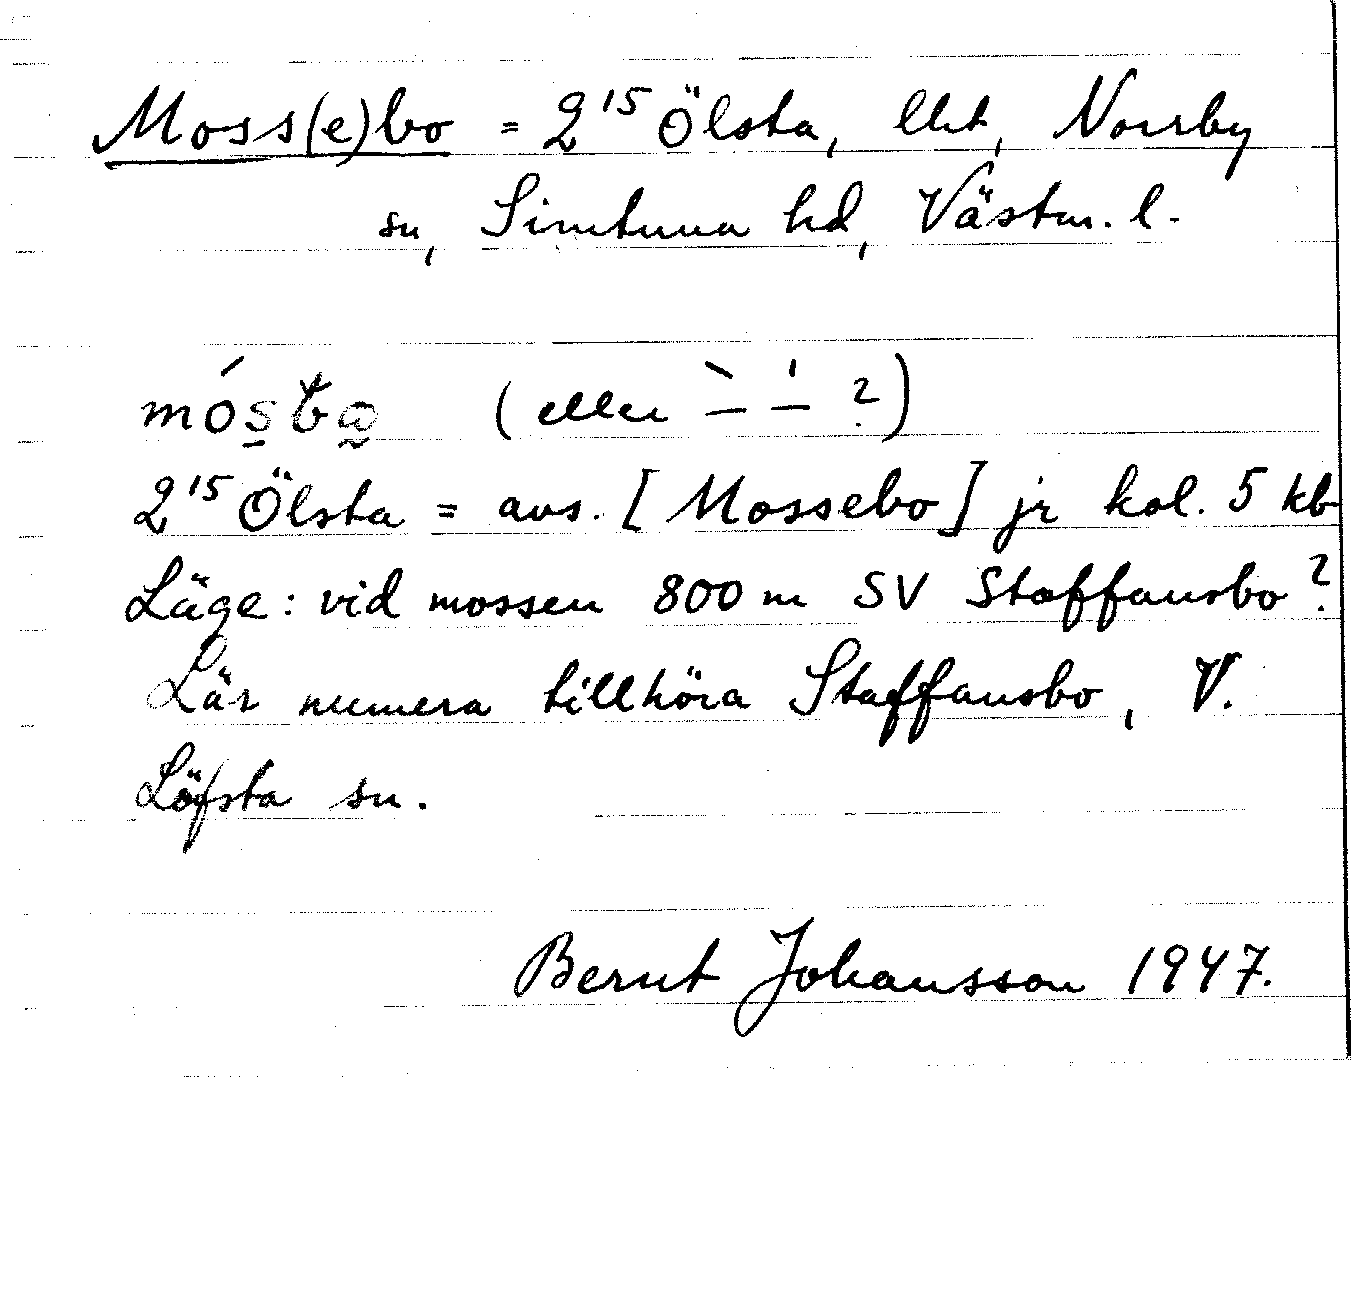 Moss(e)bo = 2¹⁵ Ölsta, lht, Norrby
sn, Simtuna hd, Västm. l.
(eller ` – ' – ?)
2¹⁵ Ölsta = avs. [Mossebo] jr kol. 5 kb
Läge: vid mossen 800 m SV Staffansbo?
Lär numera tillhöra Staffansbo, V.
Löfsta sn.
Bernt Johansson 1947.